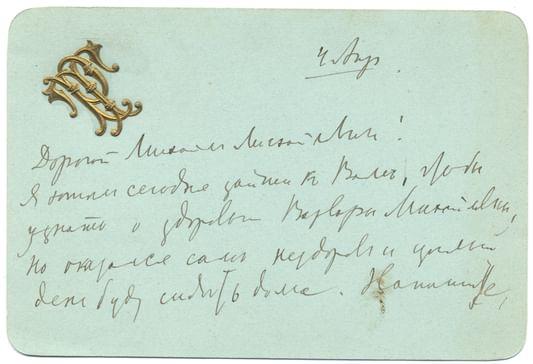 4 Апр.
Дорогой Михаил Михайлович!
Я хотел сегодня зайти к Вамъ, чтобы
узнать о здоровьи Варвары Михайловны,
но оказался самъ нездоровъ и целый
день буду сидѣть дома. Напишите,